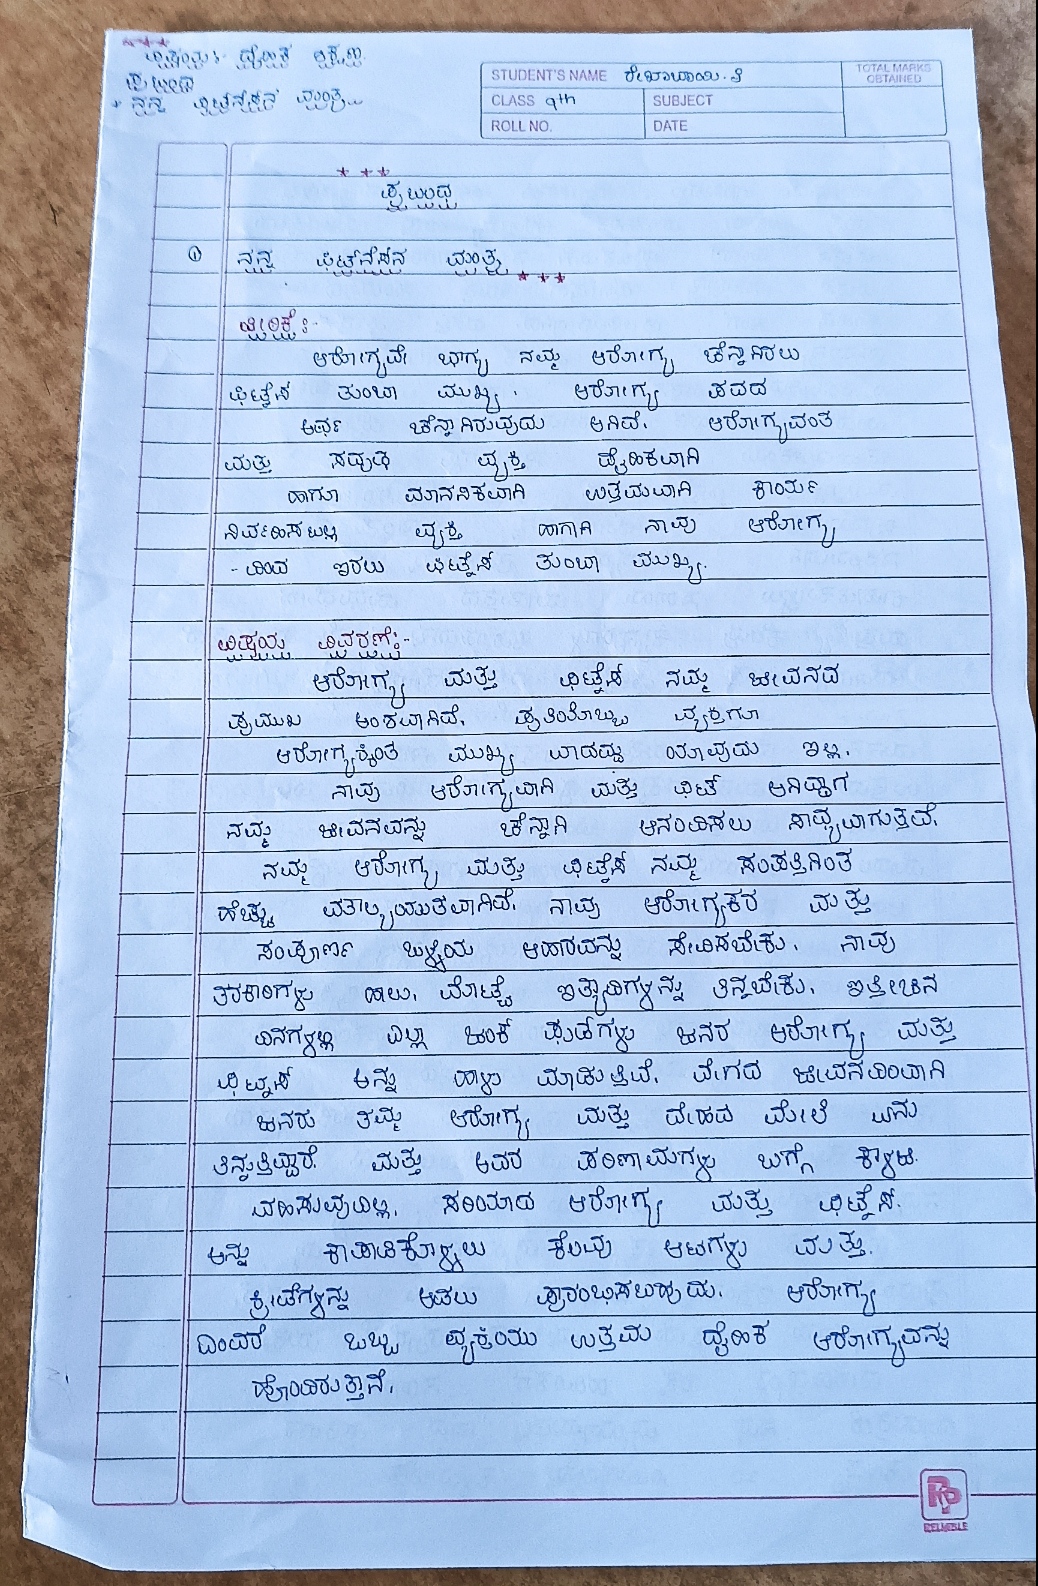 ವಿಷಯ:- ದೈಹಿಕ ಶಿಕ್ಷಣ
ಪ್ರಬಂಧ
* ನನ್ನ ಫಿಟ್ನೆಸ್‌ನ ಮಂತ್ರ
STUDENT'S NAME ರೇಖಾಬಾಯಿ.ತಿ
TOTAL MARKS OBTAINED
CLASS 9th SUBJECT
ROLL NO. DATE
ಪ್ರಬಂಧ
① ನನ್ನ ಫಿಟ್ನೆಸ್‌ನ ಮಂತ್ರ
ಪೀಠಿಕೆ:-
ಆರೋಗ್ಯವೇ ಭಾಗ್ಯ ನಮ್ಮ ಆರೋಗ್ಯ ಚೆನ್ನಾಗಿರಲು
ಫಿಟ್ನೆಸ್ ತುಂಬಾ ಮುಖ್ಯ. ಆರೋಗ್ಯ ಪದದ
ಅರ್ಥ ಚೆನ್ನಾಗಿರುವುದು ಆಗಿದೆ. ಆರೋಗ್ಯವಂತ
ಮತ್ತು ಸದೃಢ ವ್ಯಕ್ತಿ ದೈಹಿಕವಾಗಿ
ಹಾಗೂ ಮಾನಸಿಕವಾಗಿ ಉತ್ತಮವಾಗಿ ಕಾರ್ಯ
ನಿರ್ವಹಿಸಬಲ್ಲ ವ್ಯಕ್ತಿ ಹಾಗಾಗಿ ನಾವು ಆರೋಗ್ಯ
-ದಿಂದ ಇರಲು ಫಿಟ್ನೆಸ್ ತುಂಬಾ ಮುಖ್ಯ.
ವಿಷಯ ವಿವರಣೆ:-
ಆರೋಗ್ಯ ಮತ್ತು ಫಿಟ್ನೆಸ್ ನಮ್ಮ ಜೀವನದ
ಪ್ರಮುಖ ಅಂಶವಾಗಿದೆ. ಪ್ರತಿಯೊಬ್ಬ ವ್ಯಕ್ತಿಗೂ
ಆರೋಗ್ಯಕ್ಕಿಂತ ಮುಖ್ಯ ವಾದದ್ದು ಯಾವುದು ಇಲ್ಲ.
ನಾವು ಆರೋಗ್ಯವಾಗಿ ಮತ್ತು ಫಿಟ್ ಆಗಿದ್ದಾಗ
ನಮ್ಮ ಜೀವನವನ್ನು ಚೆನ್ನಾಗಿ ಆನಂದಿಸಲು ಸಾಧ್ಯವಾಗುತ್ತದೆ.
ನಮ್ಮ ಆರೋಗ್ಯ ಮತ್ತು ಫಿಟ್ನೆಸ್ ನಮ್ಮ ಸಂಪತ್ತಿಗಿಂತ
ಹೆಚ್ಚು ಮೌಲ್ಯಯುತವಾಗಿದೆ. ನಾವು ಆರೋಗ್ಯಕರ ಮತ್ತು
ಸಂಪೂರ್ಣ ಒಳ್ಳೆಯ ಆಹಾರವನ್ನು ಸೇವಿಸಬೇಕು. ನಾವು
ತರಕಾರಿಗಳು ಹಾಲು, ಮೊಟ್ಟೆ ಇತ್ಯಾದಿಗಳನ್ನು ತಿನ್ನಬೇಕು. ಇತ್ತೀಚಿನ
ದಿನಗಳಲ್ಲಿ ಎಲ್ಲಾ ಜಂಕ್ ಫುಡ್‌ಗಳು ಜನರ ಆರೋಗ್ಯ ಮತ್ತು
ಫಿಟ್ನೆಸ್ ಅನ್ನು ಹಾಳು ಮಾಡುತ್ತಿವೆ. ವೇಗದ ಜೀವನದಿಂದಾಗಿ
ಜನರು ತಮ್ಮ ಆರೋಗ್ಯ ಮತ್ತು ದೇಹದ ಮೇಲೆ ಏನು
ತಿನ್ನುತ್ತಿದ್ದಾರೆ. ಮತ್ತು ಅವರ ಪರಿಣಾಮಗಳು ಬಗ್ಗೆ ಕಾಳಜಿ
ವಹಿಸುವುದಿಲ್ಲ. ಸರಿಯಾದ ಆರೋಗ್ಯ ಮತ್ತು ಫಿಟ್ನೆಸ್.
ಅನ್ನು ಕಾಪಾಡಿಕೊಳ್ಳಲು ಕೆಲವು ಆಟಗಳು ಮತ್ತು.
ಕ್ರೀಡೆಗಳನ್ನು ಆಡಲು ಪ್ರಾರಂಭಿಸಬಹುದು. ಆರೋಗ್ಯ
ಎಂದರೆ ಒಬ್ಬ ವ್ಯಕ್ತಿಯು ಉತ್ತಮ ದೈಹಿಕ ಆರೋಗ್ಯವನ್ನು
ಹೊಂದಿರುತ್ತಾನೆ.